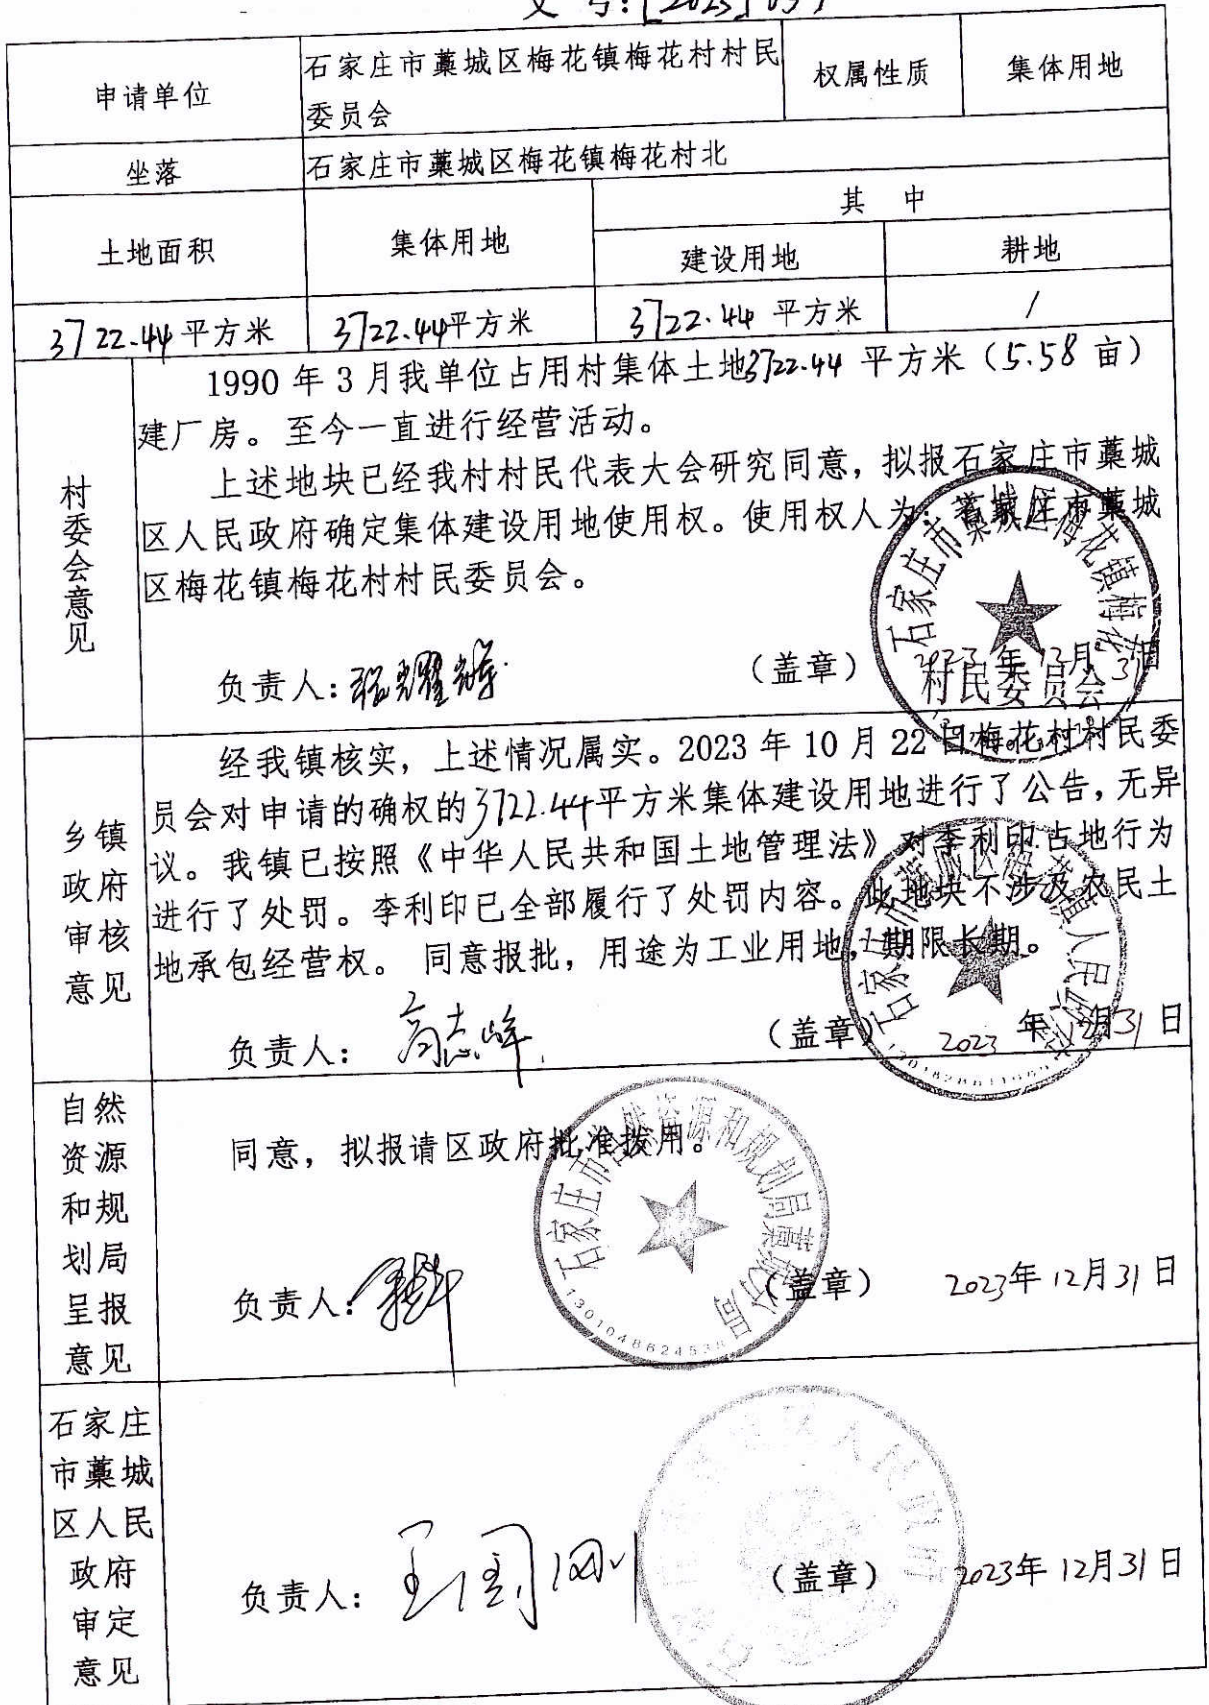 文 号:[2023]
申请单位
石家庄市藁城区梅花镇梅花村村民
委员会
权属性质
集体用地
坐落
石家庄市藁城区梅花镇梅花村北
土地面积
集体用地
其 中
建设用地
耕地
3722.44平方米
3722.44平方米
3722.44平方米
/
村委会意见
1990年3月我单位占用村集体土地3722.44平方米（5.58亩）
建厂房。至今一直进行经营活动。
上述地块已经我村村民代表大会研究同意，拟报石家庄市藁城
区人民政府确定集体建设用地使用权。使用权人为：石家庄市藁城
区梅花镇梅花村村民委员会。
负责人：
（盖章）
2023年12月31日
石家庄市藁城区梅花镇梅花
村民委员会
乡镇
政府
审核
意见
经我镇核实，上述情况属实。2023年10月22日梅花村村民委
员会对申请的确权的3722.44平方米集体建设用地进行了公告，无异
议。我镇已按照《中华人民共和国土地管理法》对李利印占地行为
进行了处罚。李利印已全部履行了处罚内容。此地块不涉及农民土
地承包经营权。 同意报批，用途为工业用地，期限长期。
负责人： 高志峰
（盖章）
2023年12月31日
石家庄市藁城区梅花镇人民政府
自然
资源
和规
划局
呈报
意见
同意，拟报请区政府批准拨用。
负责人：
（盖章）
2023年12月31日
石家庄市自然资源和规划局藁城分局
石家庄
市藁城
区人民
政府
审定
意见
负责人：
（盖章）
2023年12月31日
区人民政府